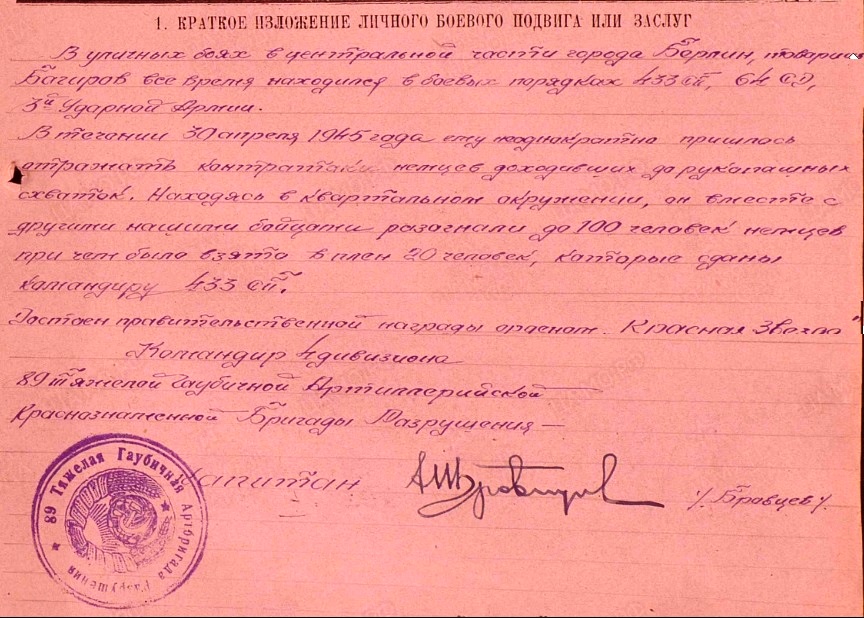 1. КРАТКОЕ ИЗЛОЖЕНИЕ ЛИЧНОГО БОЕВОГО ПОДВИГА ИЛИ ЗАСЛУГ
В уличных боях в центральной части города Берлин, товарищ
Багиров все время находился в боевых порядках 433 СП, 64 СД,
3й Ударной Армии.
В течении 30 апреля 1945 года ему неоднократно пришлось
отражать контратаки немцев доходивших до рукопашных
схваток. Находясь в квартальном окружении, он вместе с
другими нашими бойцами разогнали до 100 человек немцев
при чем было взято в плен 20 человек, которые сданы
командиру 433 СП.
Достоен правительственной награды орденом "Красная Звезда"
Командир 4 дивизиона
89 Тяжелой Гаубичной Артиллерийской
Краснознаменной Бригады Разрушения —
Капитан /Бравцев/.
89 Тяжелая Гаубичная Артбригада Разрушения